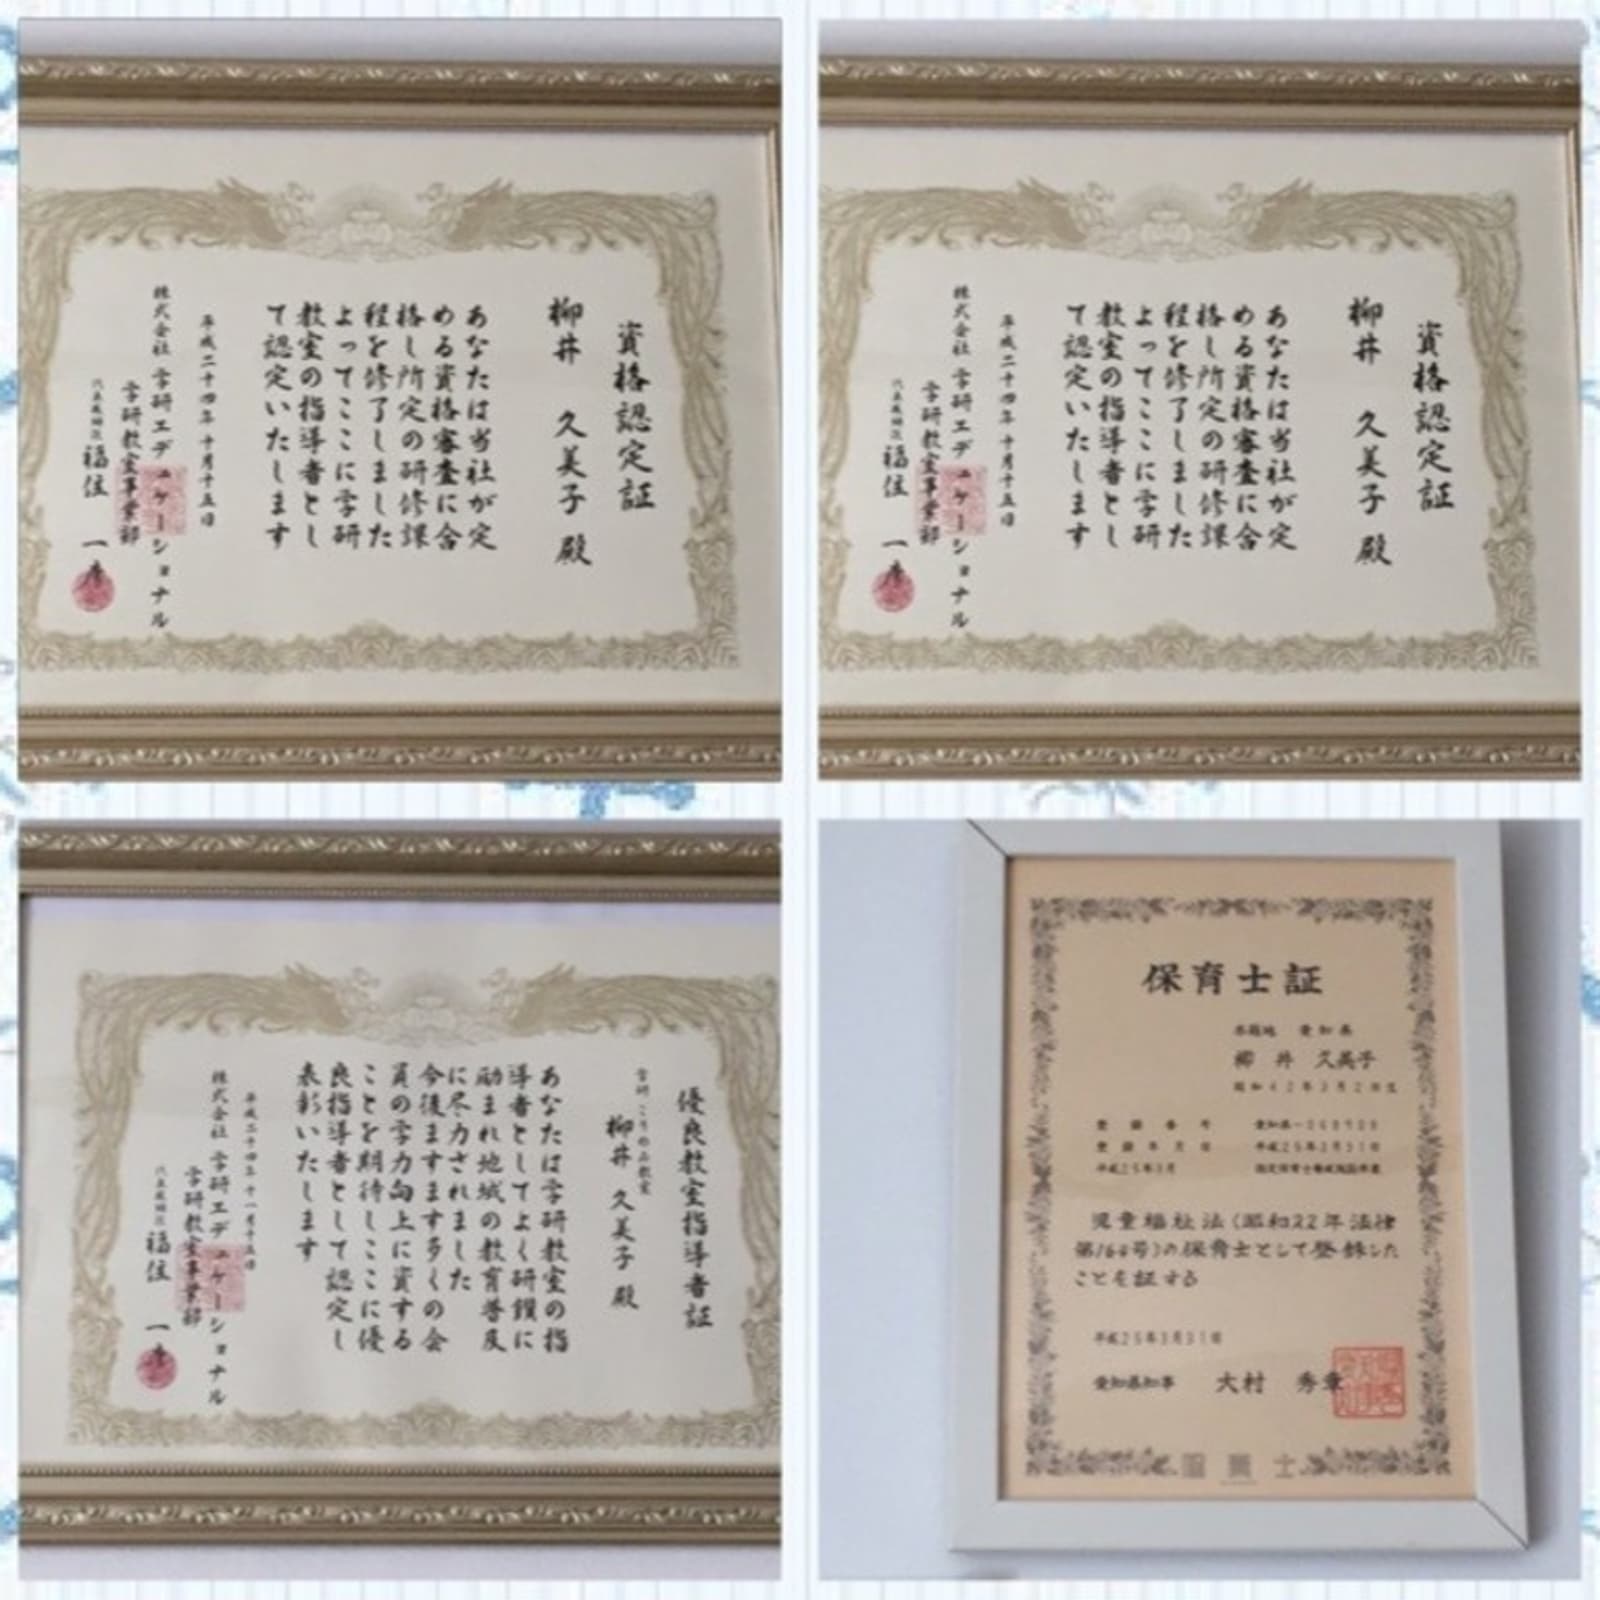 資格認定証
柳井 久美子 殿
あなたは当社が定
める資格審査に合
格し所定の研修課
程を修了しました
よってここに学研
教室の指導者とし
て認定いたします
平成二十四年十月十五日
株式会社 学研エデュケーショナル
学研教室事業部
福住 一彦
資格認定証
柳井 久美子 殿
あなたは当社が定
める資格審査に合
格し所定の研修課
程を修了しました
よってここに学研
教室の指導者とし
て認定いたします
平成二十四年十月十五日
株式会社 学研エデュケーショナル
学研教室事業部
福住 一彦
優良教室指導者証
柳井 久美子 殿
あなたは学研教室の指
導者としてよく研鑽に
励まれ地域の教育普及
に尽力されました
今後ますます多くの会
員の学力向上に資する
ことを期待しここに優
良指導者として認定し
表彰いたします
平成二十四年十一月十五日
株式会社 学研エデュケーショナル
学研教室事業部
福住 一彦
保育士証
本籍地 愛知県
柳井 久美子
昭和42年3月2日生
登録番号
登録年月日 平成25年3月31日
平成25年3月
児童福祉法(昭和22年法律
第164号)の保育士として登録した
ことを証する
平成25年3月31日
愛知県知事 大村 秀章